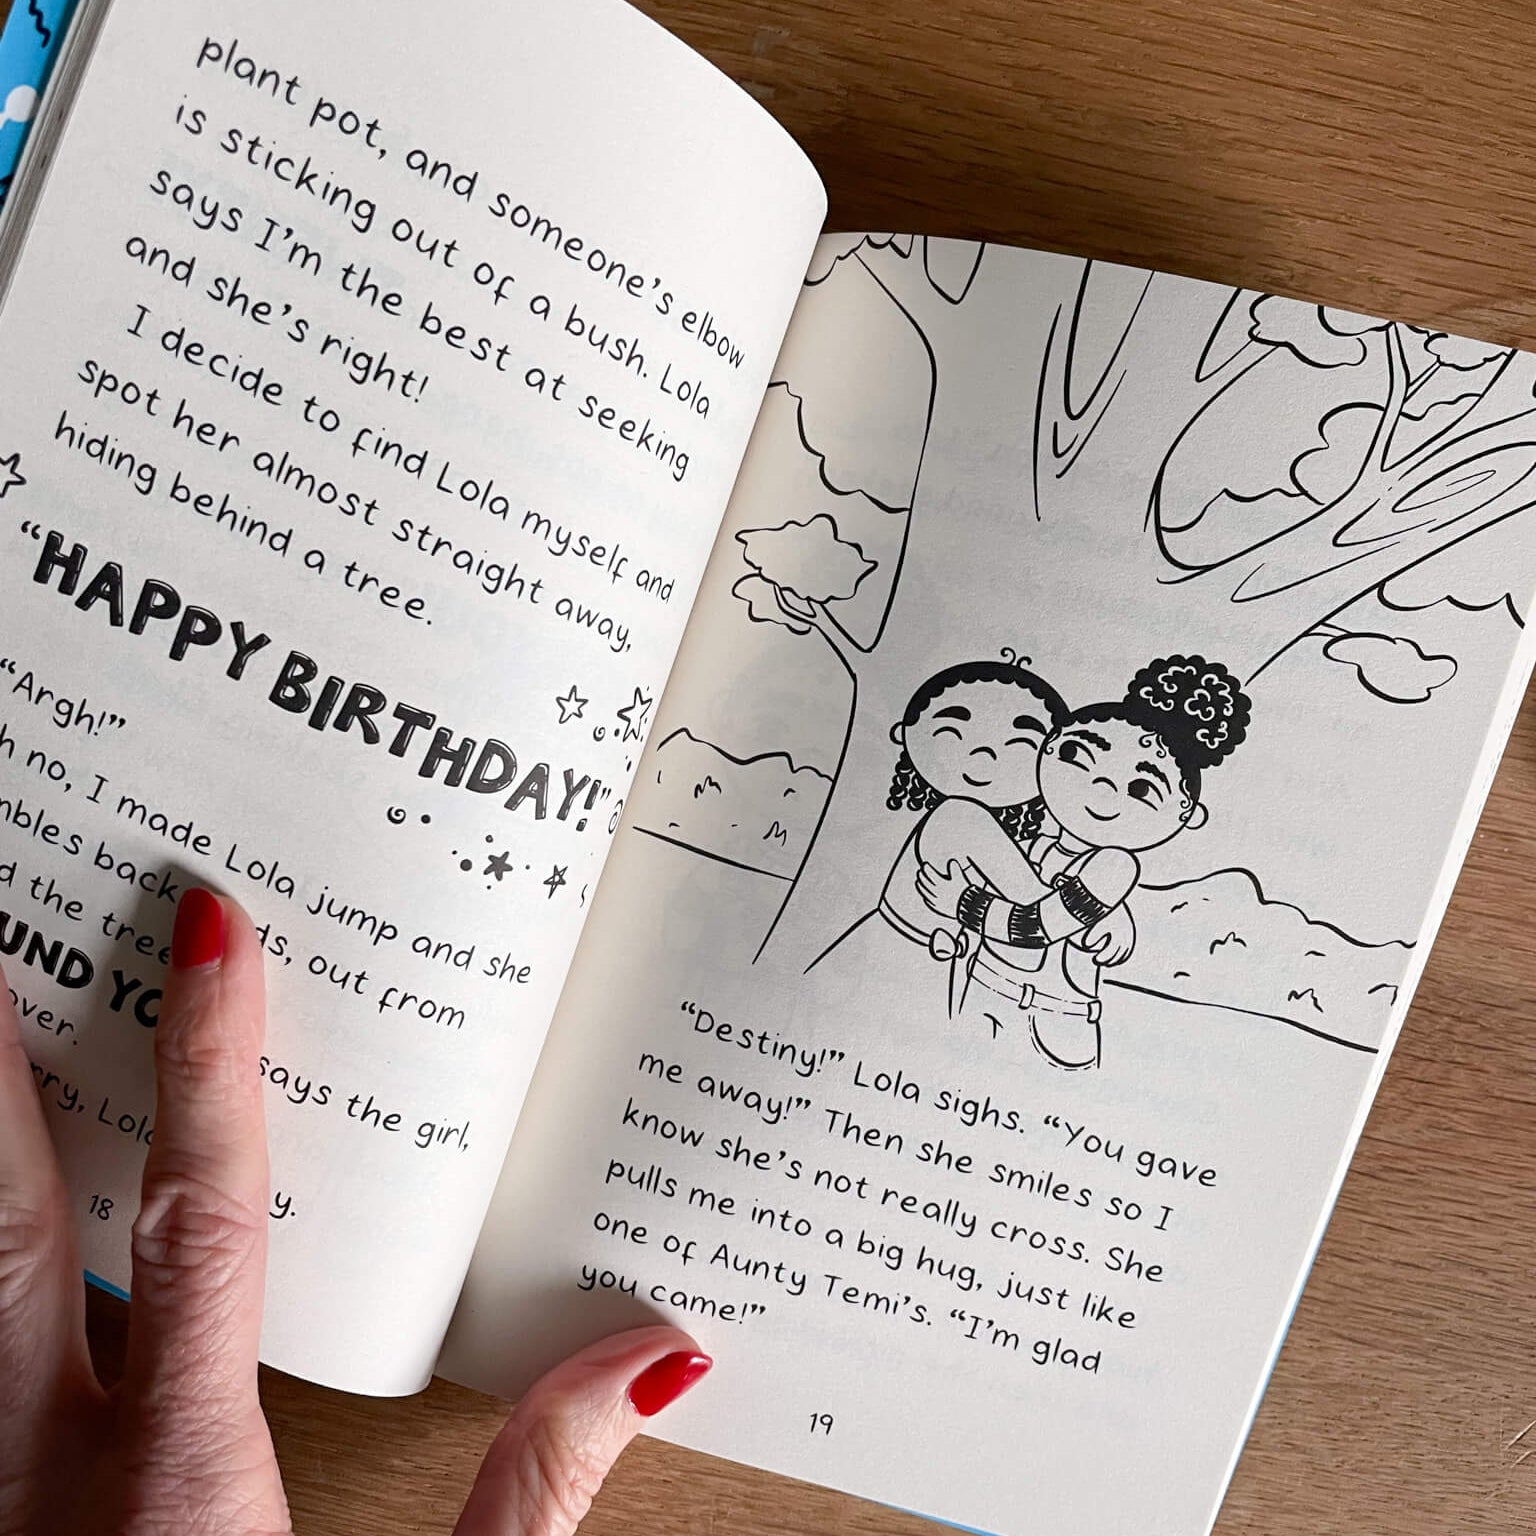 plant pot, and someone's elbow
is sticking out of a bush. Lola
says I'm the best at seeking
and she's right!
I decide to find Lola myself and
spot her almost straight away,
hiding behind a tree.
"HAPPY BIRTHDAY!"
"Argh!"
no, I made Lola jump and she
back out from
the tree
says the girl,
18
"Destiny!" Lola sighs. "You gave
me away!" Then she smiles so I
know she's not really cross. She
pulls me into a big hug, just like
one of Aunty Temi's. "I'm glad
you came!"
19